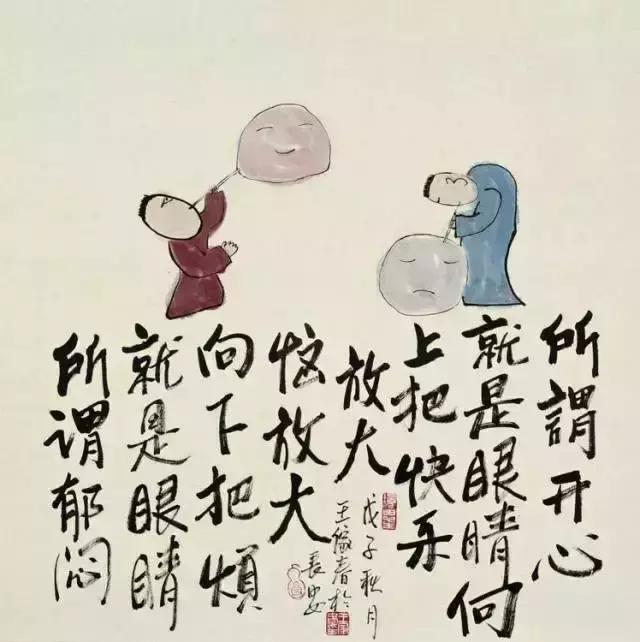 所謂开心
就是眼睛向
上把快乐
放大
所谓郁闷
就是眼睛
向下把煩
恼放大
戊子秋月
王春於
长安